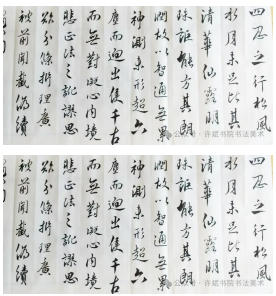 四忍之行松風
水月未足比其
清華仙露明
珠詎能方其朗
潤故以智通無累
神測未形超六
塵而迥出隻千古
而無對凝心內境
悲正法之訛謬思
欲分條析理廣
彼前聞截偽續
公众号·许斌书院书法美术
四忍之行松風
水月未足比其
清華仙露明
珠詎能方其朗
潤故以智通無累
神測未形超六
塵而迥出隻千古
而無對凝心內境
悲正法之訛謬思
欲分條析理廣
彼前聞截偽續
公众号·许斌书院书法美术